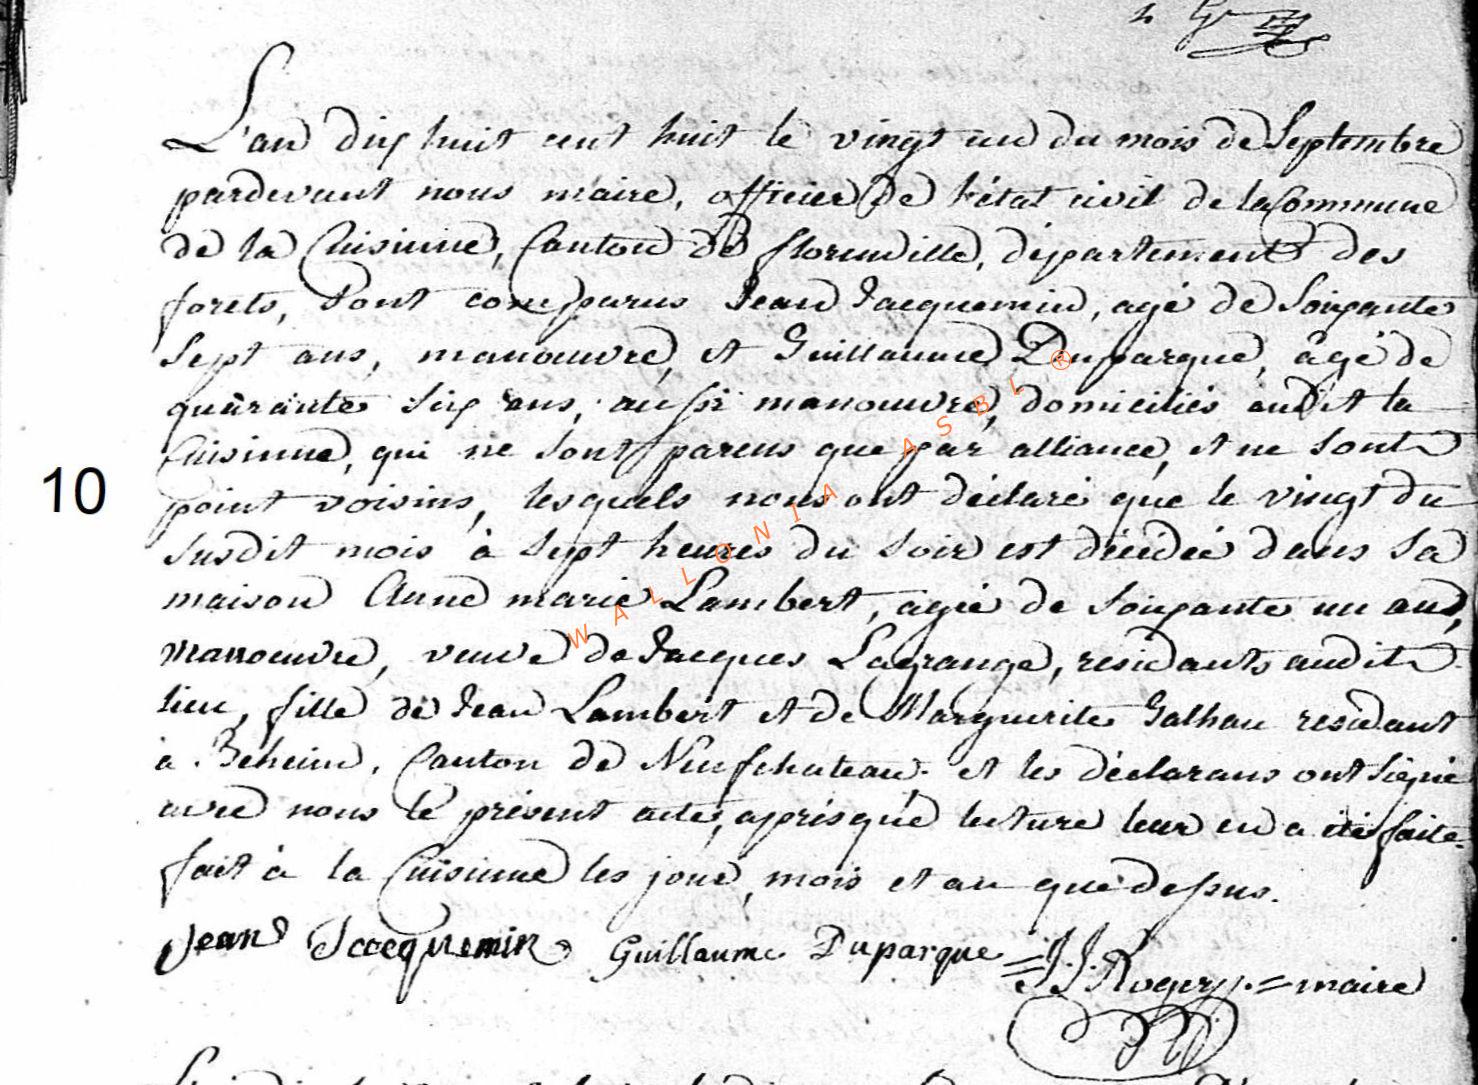 L'an dix huit cent huit le vingt un du mois de Septembre
pardevant nous maire, officier de l'état civil de la Commune
de la Cuisinne, Canton de florenville, département des
forets, Sont comparus Jean Jacquemin, agé de Soixante
Sept ans, manoeuvre, et Guillaume Duparque, âgé de
quârante Six ans, aussi manoeuvre, domiciliés audit la
Cuisinne, qui ne sont parens que par alliance, et ne sont
10
point voisins, lesquels nous ont déclaré que le vingt du
susdit mois à sept heures du soir est décédée dans sa
maison Anne marie Lambert, agée de soixante un ans,
manoeuvre, veuve de Jacques Lagrange, residants audit
lieu, fille de Jean Lambert et de Marguerite Galhau residant
à Beheim, Canton de Neufchateau. et les déclarans ont signé
avec nous le présent acte, après que lecture leur en a été faite.
fait à la Cuisinne les jour, mois et an que dessus.
Jean Jacquemin Guillaume Duparque J.J. Rogery. = maire
WALLONIA ASBL ®